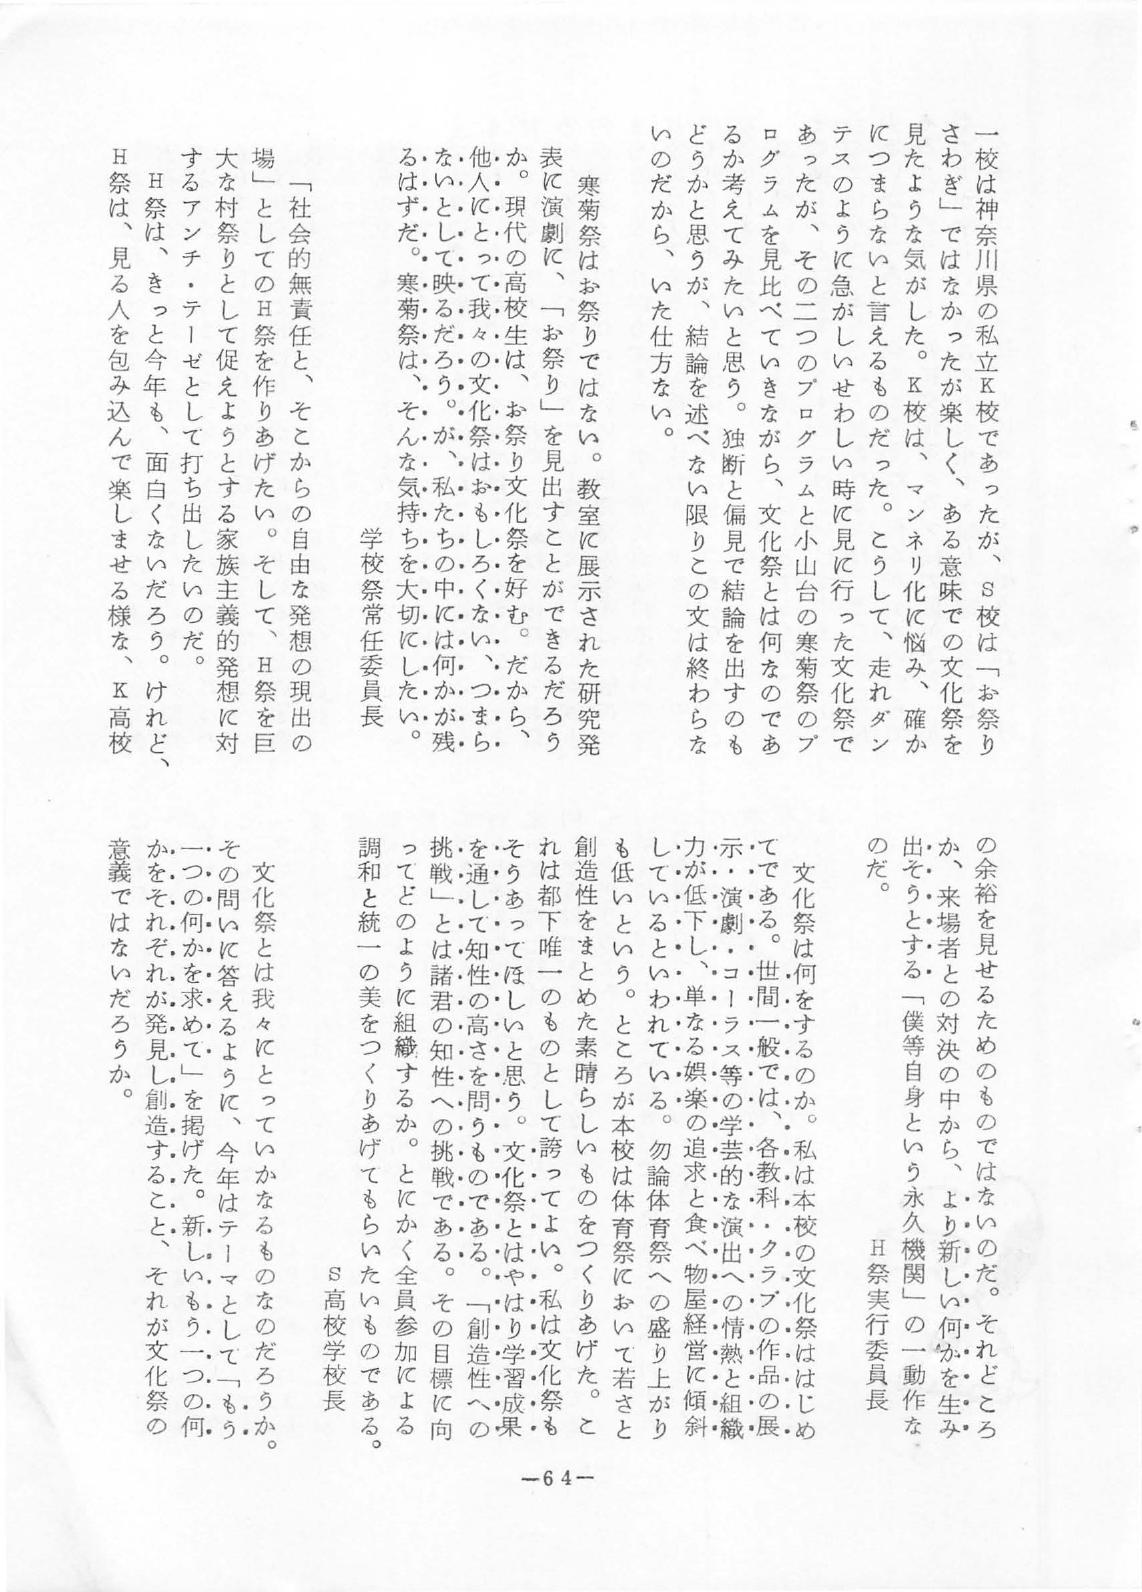 一校は神奈川県の私立K校であったが、S校は「お祭り
さわぎ」ではなかったが楽しく、ある意味での文化祭を
見たような気がした。K校は、マンネリ化に悩み、確か
につまらないと言えるものだった。こうして、走れダン
テスのように急がしいせわしい時に見に行った文化祭で
あったが、その二つのプログラムと小山台の寒菊祭のプ
ログラムを見比べていきながら、文化祭とは何なのであ
るか考えてみたいと思う。独断と偏見で結論を出すのも
どうかと思うが、結論を述べない限りこの文は終わらな
いのだから、いた仕方ない。
寒菊祭はお祭りではない。教室に展示された研究発
表に演劇に、「お祭り」を見出すことができるだろう
か。現代の高校生は、お祭り文化祭を好む。だから、
他人にとって我々の文化祭はおもしろくない、つまら
ないとして映るだろう。が、私たちの中には何かが残
るはずだ。寒菊祭は、そんな気持ちを大切にしたい。
学校祭常任委員長
「社会的無責任と、そこからの自由な発想の現出の
場」としてのH祭を作りあげたい。そして、H祭を巨
大な村祭りとして促えようとする家族主義的発想に対
するアンチ・テーゼとして打ち出したいのだ。
H祭は、きっと今年も、面白くないだろう。けれど、
H祭は、見る人を包み込んで楽しませる様な、K高校
の余裕を見せるためのものではないのだ。それどころ
か、来場者との対決の中から、より新しい何かを生み
出そうとする「僕等自身という永久機関」の一動作な
のだ。
H祭実行委員長
文化祭は何をするのか。私は本校の文化祭ははじめ
てである。世間一般では、各教科・クラブの作品の展
示・演劇・コーラス等の学芸的な演出への情熱と組織
力が低下し、単なる娯楽の追求と食べ物屋経営に傾斜
しているといわれている。勿論体育祭への盛り上がり
も低いという。ところが本校は体育祭において若さと
創造性をまとめた素晴らしいものをつくりあげた。こ
れは都下唯一のものとして誇ってよい。私は文化祭も
そうあってほしいと思う。文化祭とはやはり学習成果
を通して知性の高さを問うものである。「創造性への
挑戦」とは諸君の知性への挑戦である。その目標に向
ってどのように組織するか。とにかく全員参加による
調和と統一の美をつくりあげてもらいたいものである。
S高校学校長
文化祭とは我々にとっていかなるものなのだろうか。
その問いに答えるように、今年はテーマとして「もう
一つの何かを求めて」を掲げた。新しいもう一つの何
かをそれぞれが発見し創造すること、それが文化祭の
意義ではないだろうか。
—64—